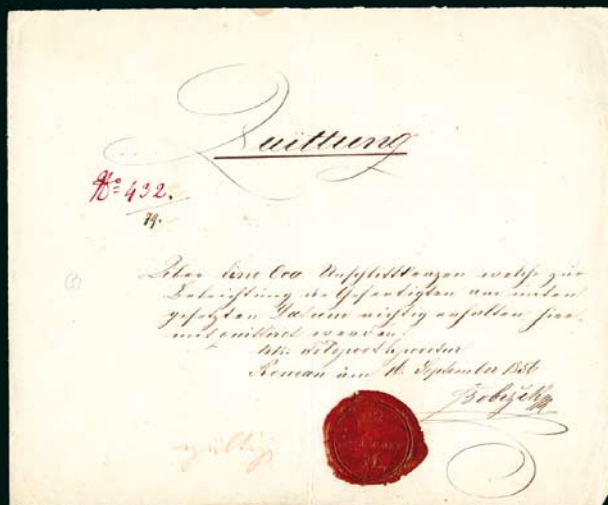 Quittung
No 432.
79.
Über Eine Oca Unschlittkerzen welche zur
Beleichtung des Gefertigten am unten
gesetzten Datum richtig erhalten hier
mit quittirt werden.
KK: Feldpost Expeditur
Roman am 16. September 1856
gültig